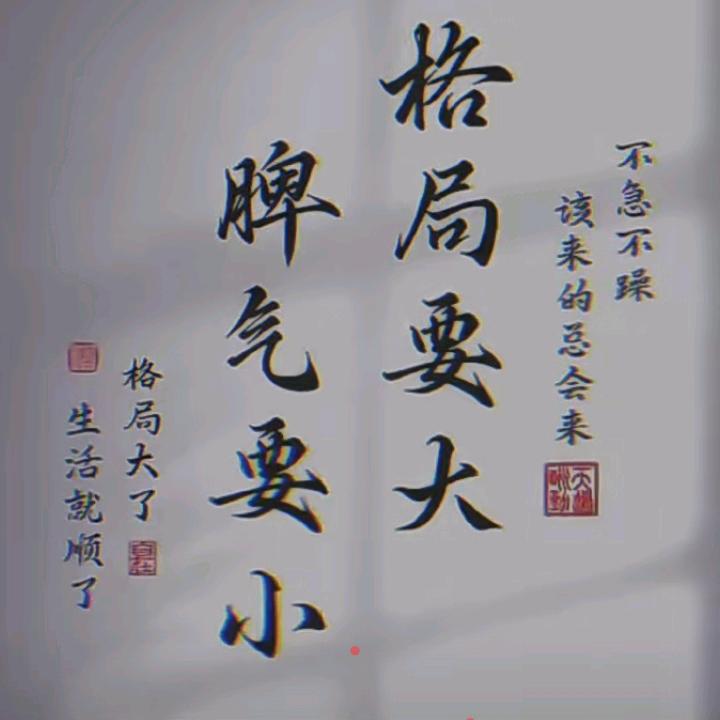 不急不躁
该来的总会来
格局要大
脾气要小
格局大了
生活就顺了